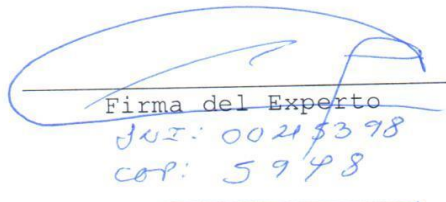 Firma del Experto
DNI: 00245398
COP: 5948